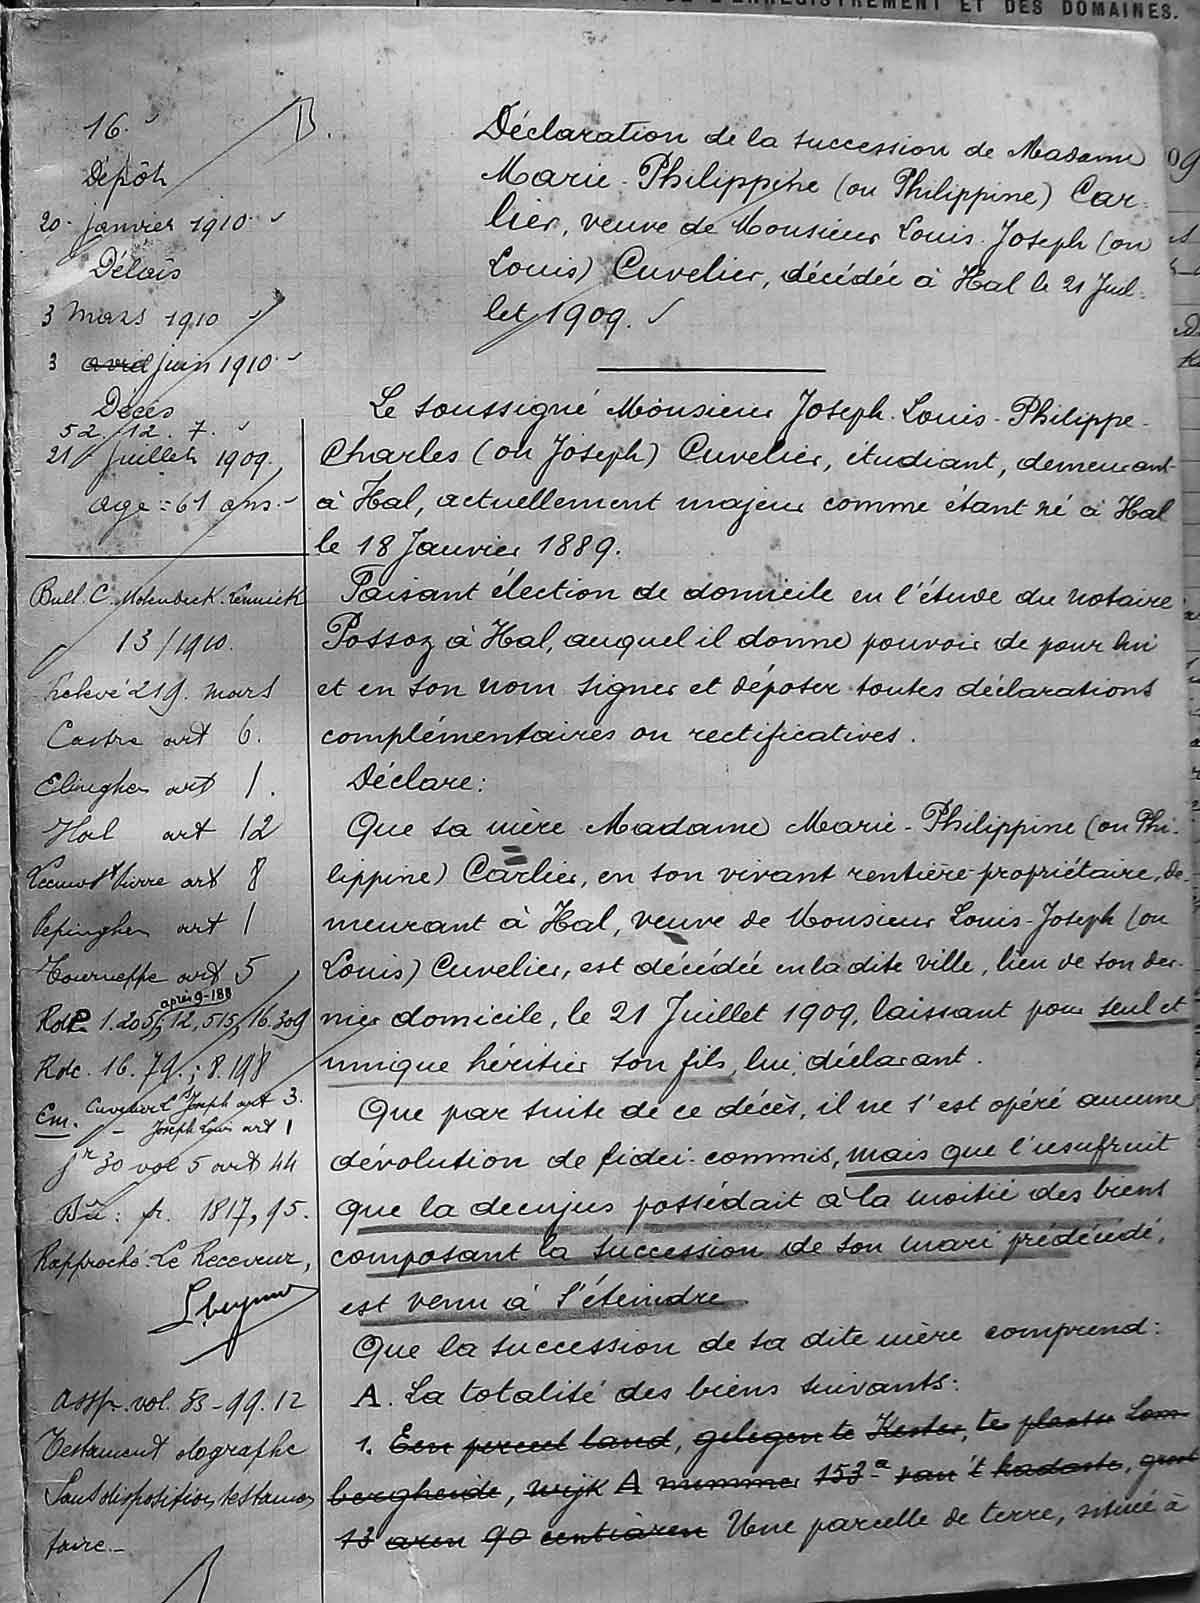 DE L'ENREGISTREMENT ET DES DOMAINES.
16.
Dépôt
20 janvier 1910
Délais
3 Mars 1910
3 avril juin 1910
Décès
52/12. 7.
21 Juillet 1909.
age = 61 ans.
Déclaration de la succession de Madame
Marie-Philippine (ou Philippine) Car-
lier, veuve de Monsieur Louis-Joseph (ou
Louis) Cuvelier, décédée à Hal le 21 Juil-
let 1909.
Le soussigné Monsieur Joseph-Louis-Philippe-
Charles (ou Joseph) Cuvelier, étudiant, demeurant
à Hal, actuellement majeur comme étant né à Hal
le 18 Janvier 1889.
Faisant élection de domicile en l'étude du notaire
Possoz à Hal, auquel il donne pouvoir de pour lui
et en son nom signer et déposer toutes déclarations
complémentaires ou rectificatives.
Déclare:
Que sa mère Madame Marie-Philippine (ou Phi-
lippine) Carlier, en son vivant rentière-propriétaire, de-
meurant à Hal, veuve de Monsieur Louis-Joseph (ou
Louis) Cuvelier, est décédée en la dite ville, lieu de son der-
nier domicile, le 21 Juillet 1909, laissant pour seul et
unique héritier son fils, lui, déclarant.
Que par suite de ce décès, il ne s'est opéré aucune
dévolution de fidei-commis, mais que l'usufruit
que la decujus possédait à la moitié des biens
composant la succession de son mari prédécédé,
est venu à s'éteindre
Que la succession de sa dite mère comprend:
A. La totalité des biens suivants:
1. Een perceel land, gelegen te Kester, ter plaatse Lom-
bergheide, wijk A nummer 153a van 't kadaster, groot
13 aren 90 centiaren Une parcelle de terre, située à
Bull. C. Molenbeek. Lennick
13/1910.
relevé 219. mars
Castre art 6.
Elingher art 1.
Hal art 12
Leeuw St Pierre art 8
Pepinghen art 1
Tourneppe art 5
après 9-188
Rdt 1.205; 12,515, 16.309
Rdc. 16.79.; 8.198
Em. Cuvelier L Joseph art 3.
- Joseph Louis art 1
30 vol 5 art 44
fr. 1817,95.
Rapproché: Le Receveur,
vol. 53-99.12
Testament olographe
Sans disposition testamen
taire.-